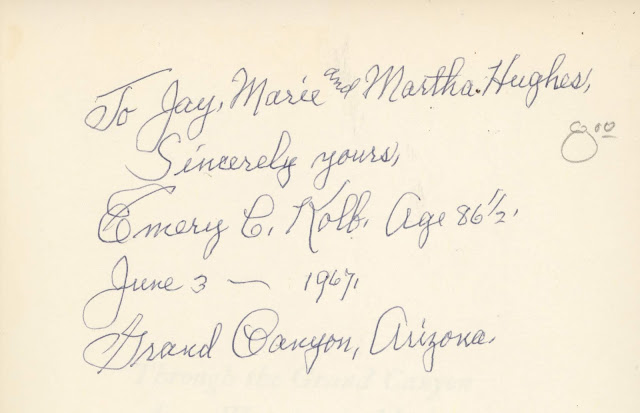 To Jay, Marie and Martha Hughes,
8.00
Sincerely yours,
Emery C. Kolb. Age 86 1/2.
June 3 — 1967.
Grand Canyon, Arizona.
Through the Grand Canyon